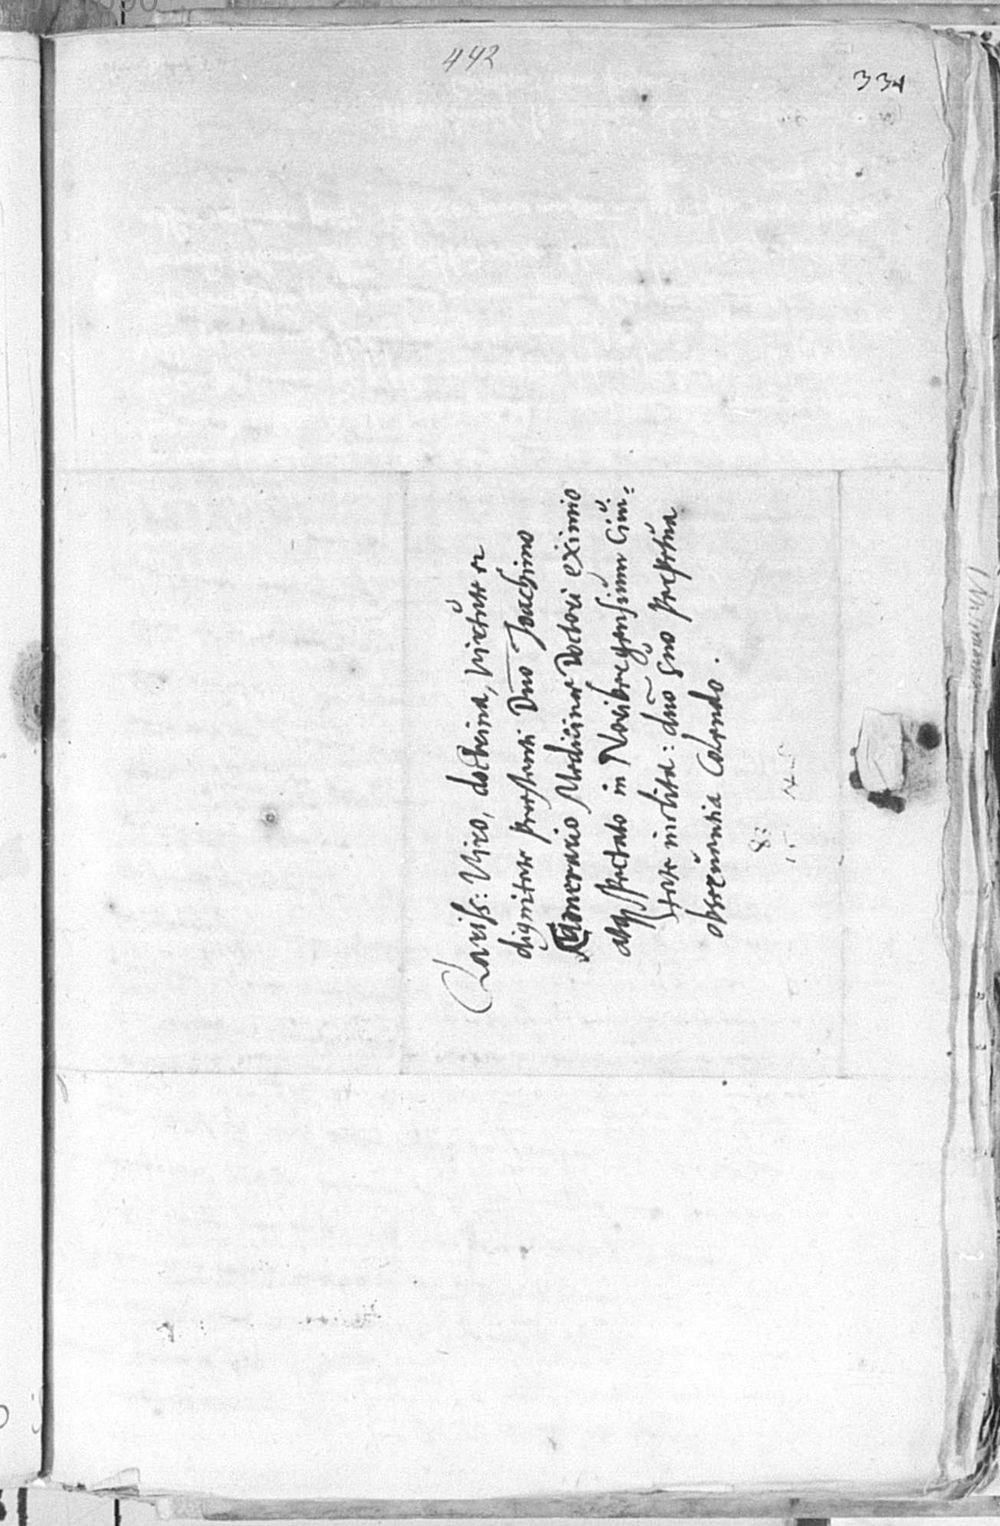 442
334
Clariss: Viro, doctrina, virtute et
dignitate praestanti Dno Joachimo
Camerario Medicinae Doctori eximio
atq spectato in Noribergensium Ciui-
tate inclita: dno suo
obseruantia Colendo.